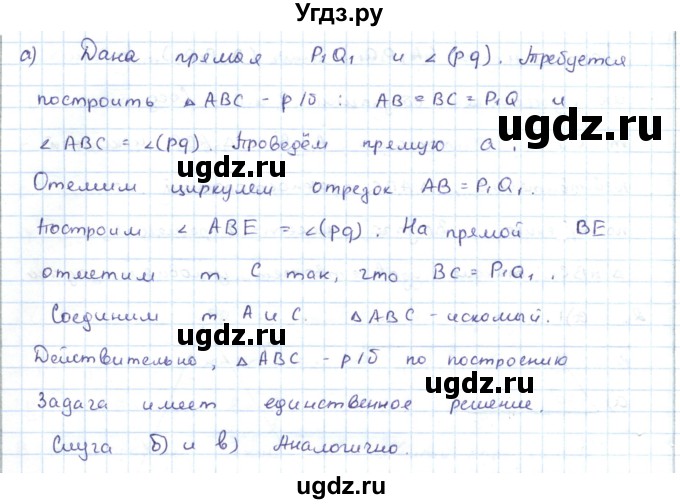 Угдз.ру
а) Дана прямая P₁Q₁ и ∠(pq). Требуется
построить △ABC - р/б : AB = BC = P₁Q и
ugdz.ru
∠ABC = ∠(pq). Проведём прямую a.
ugdz.ru
Отемим циркулем отрезок AB = P₁Q₁.
Построим ∠ABE = ∠(pq). На прямой BE
ugdz.ru
отметим т. C так, что BC = P₁Q₁.
ugdz.ru
Соединим т. A и C. △ABC - искомый.
ugdz.ru
Действительно, △ABC - р/б по построению
ugdz.ru
Задача имеет единственное решение.
Слуга б) и в) Аналогично.
ugdz.ru